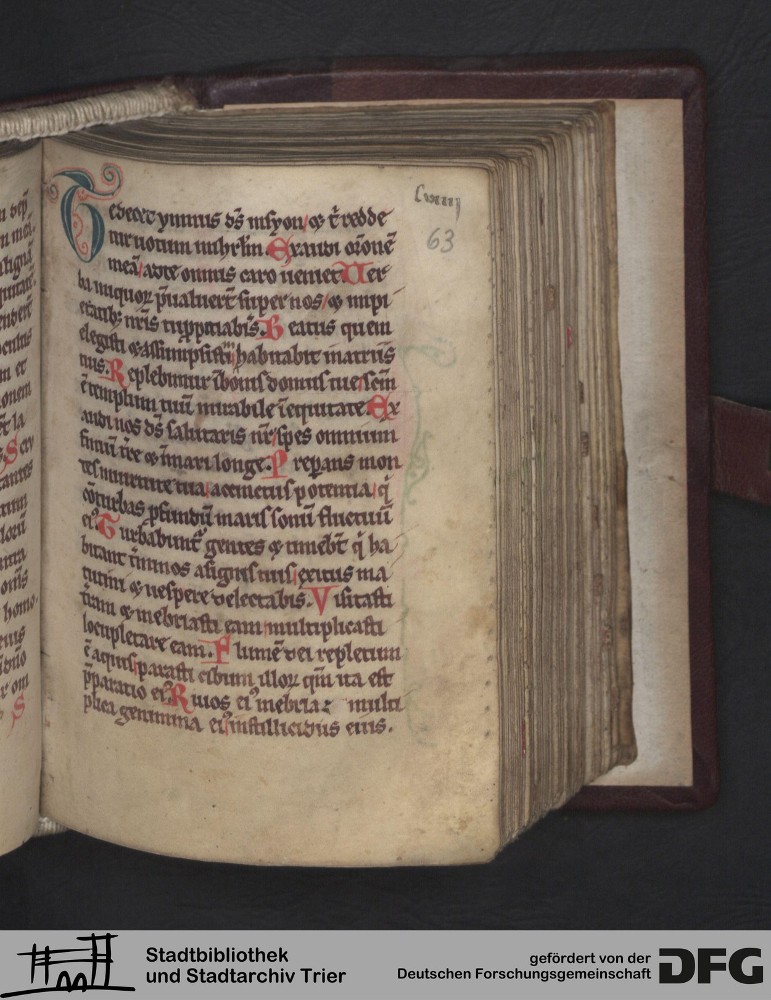 Lviiij
63
Te decet ymnus dſ inſyon / ⁊ t̄ redde
tur uotum inihrl̄m. Exaudi or̄onē
meā / ad te omnis caro ueniet. Uer
ba iniquoꝝ p̄ualuert̄ ſuper nos / ⁊ impi
etatib; nr̄is tu ppitiabiſ. Beatus quem
elegiſti ⁊ aſſumpſiſti / habitabit inatriis
tuis. Replebimur ī bonis domus tue / ſcm̄
ē templum tuū mirabile ī equitate. Ex
audi nos dſ ſalutaris nr̄ / ſpes omnium
finiū tr̄e ⁊ īmari longe. Preparans mon
tes inuirtute tua / accinctus potentia / q̄
cōturbas pfundū maris ſonū fluctuū
eiꝰ. Turbabunt̄ gentes ⁊ timebt̄ q̄ ha
bitant t̄minos aſignis tuis / exitus ma
tutini ⁊ ueſpere delectabis. Viſitaſti
tr̄am ⁊ inebriaſti eam / multiplicaſti
locupletare eam. Flumē dei repletum
ē aquis / paraſti cibum illoꝝ qm̄ ita eſt
p̄paratio eiꝰ. Riuos eiꝰ inebria: multi
plica genimina eiꝰ / inſtillicidiis eius.
Stadtbibliothek
und Stadtarchiv Trier
gefördert von der
Deutschen Forschungsgemeinschaft
DFG